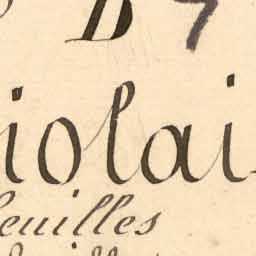 D 7
iolai
feuilles